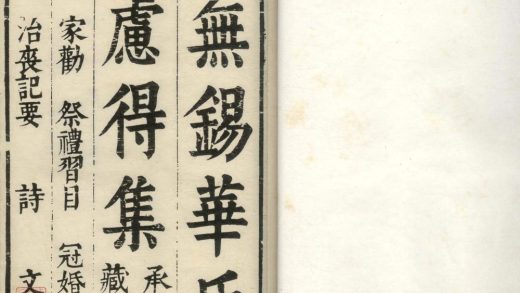 無錫華氏
慮得集
承
藏
家勸 祭禮習目 冠婚
治喪記要 詩 文